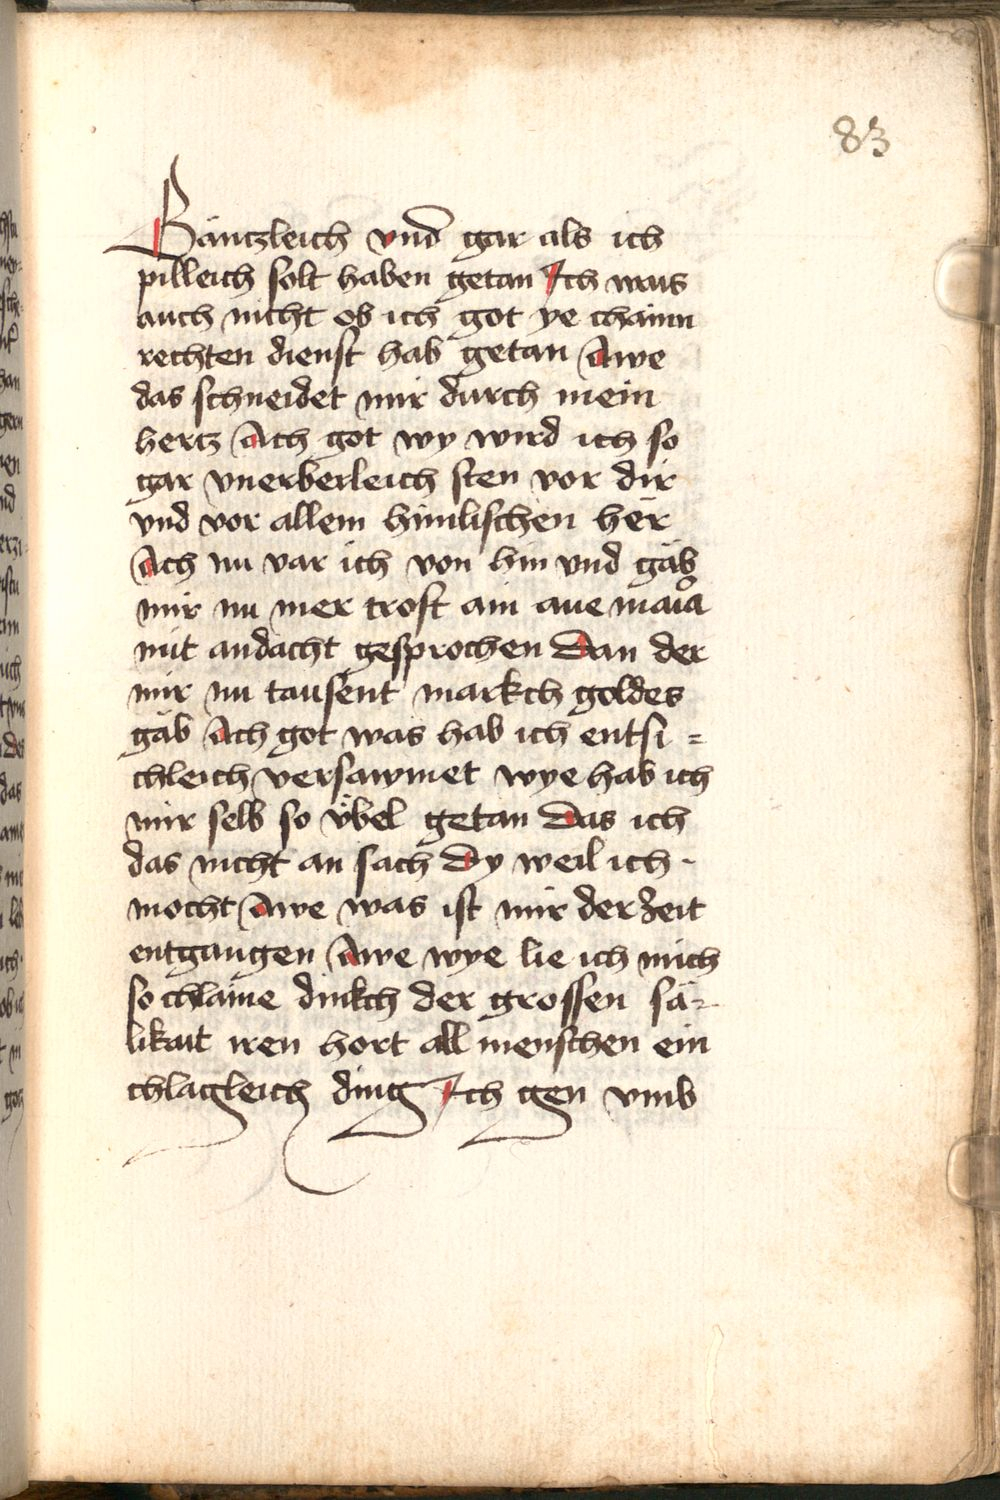 83
Gäntzleich vnd gar als ich
pilleich solt haben getan Ich wais
auch nicht ob ich got ye chainn
rechten dienst hab getan Awe
das schneidet mir durch mein
hertz Ach got wy wird ich so
gar vnerberleich sten vor dir
vnd vor allem himlischen her
Ach nu var ich von hin vnd gäb
mir nu mer trost ain aue maia
mit andacht gesprochen Dan der
mir nu tausent markch goldes
gäb Ach got was hab ich entsi =
chleich versawmet wye hab ich
mir selb so vbel getan Das ich
das nicht an sach Dy weil ich
mocht Awe was ist mir der zeit
entgangen Awe wye lie ich mich
so chlaine dinkch der grossen sä=
likait iren hort all menschen ein
chlagleich ding Ich gen vmb